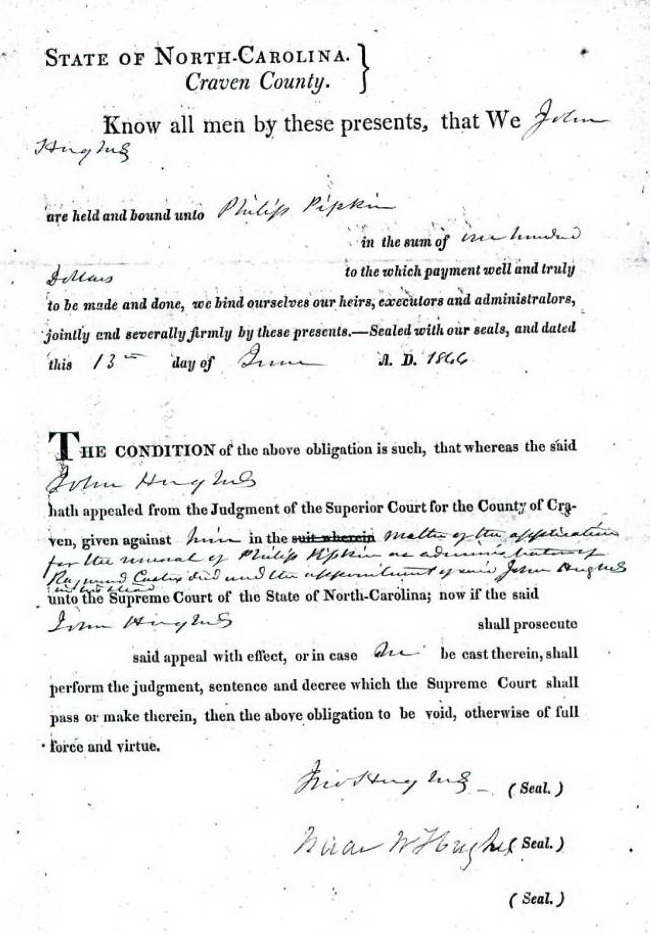 STATE OF NORTH-CAROLINA.
Craven County.
Know all men by these presents, that We John
Hughes
are held and bound unto Philip Pipkin
in the sum of one hundred
Dollars to the which payment well and truly
to be made and done, we bind ourselves our heirs, executors and administralors,
jointly and severally firmly by these presents.—Sealed with our seals, and dated
this 13th day of June A. D. 1866
THE CONDITION of the above obligation is such, that whereas the said
John Hughes
hath appealed from the Judgment of the Superior Court for the County of Cra-
ven, given against him in the suit wherein matter of the application
for the removal of Philip Pipkin as administrator of
Raymond Castix died and the appointment of said John Hughes
in his stead
unto the Supreme Court of the State of North-Carolina; now if the said
John Hughes shall prosecute
said appeal with effect, or in case he be cast therein, shall
perform the judgment, sentence and decree which the Supreme Court shall
pass or make therein, then the above obligation to be void, otherwise of full
force and virtue.
Jno Hughes (Seal.)
W Hughes (Seal.)
(Seal.)